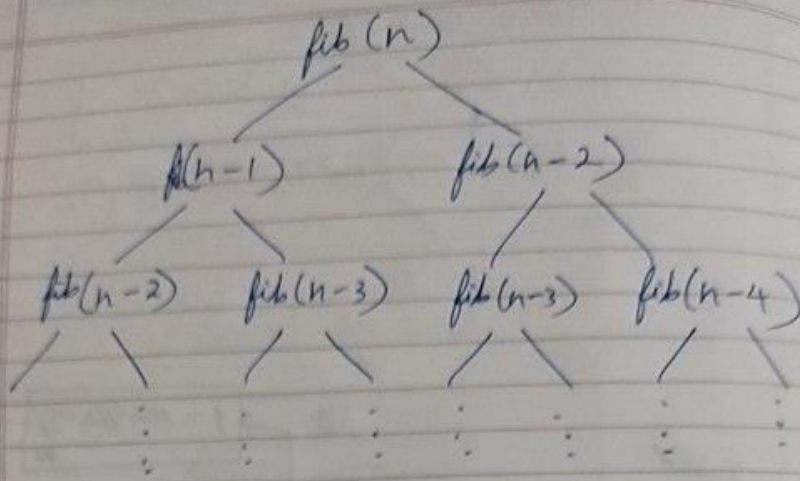 fib(n)
f(n-1) fib(n-2)
fib(n-2) fib(n-3) fib(n-3) fib(n-4)